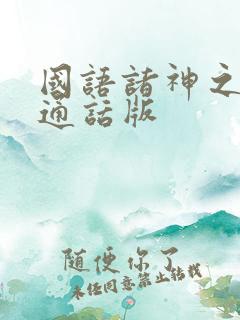 國語諸神之
通話版
随便你了
未经同意禁止转载